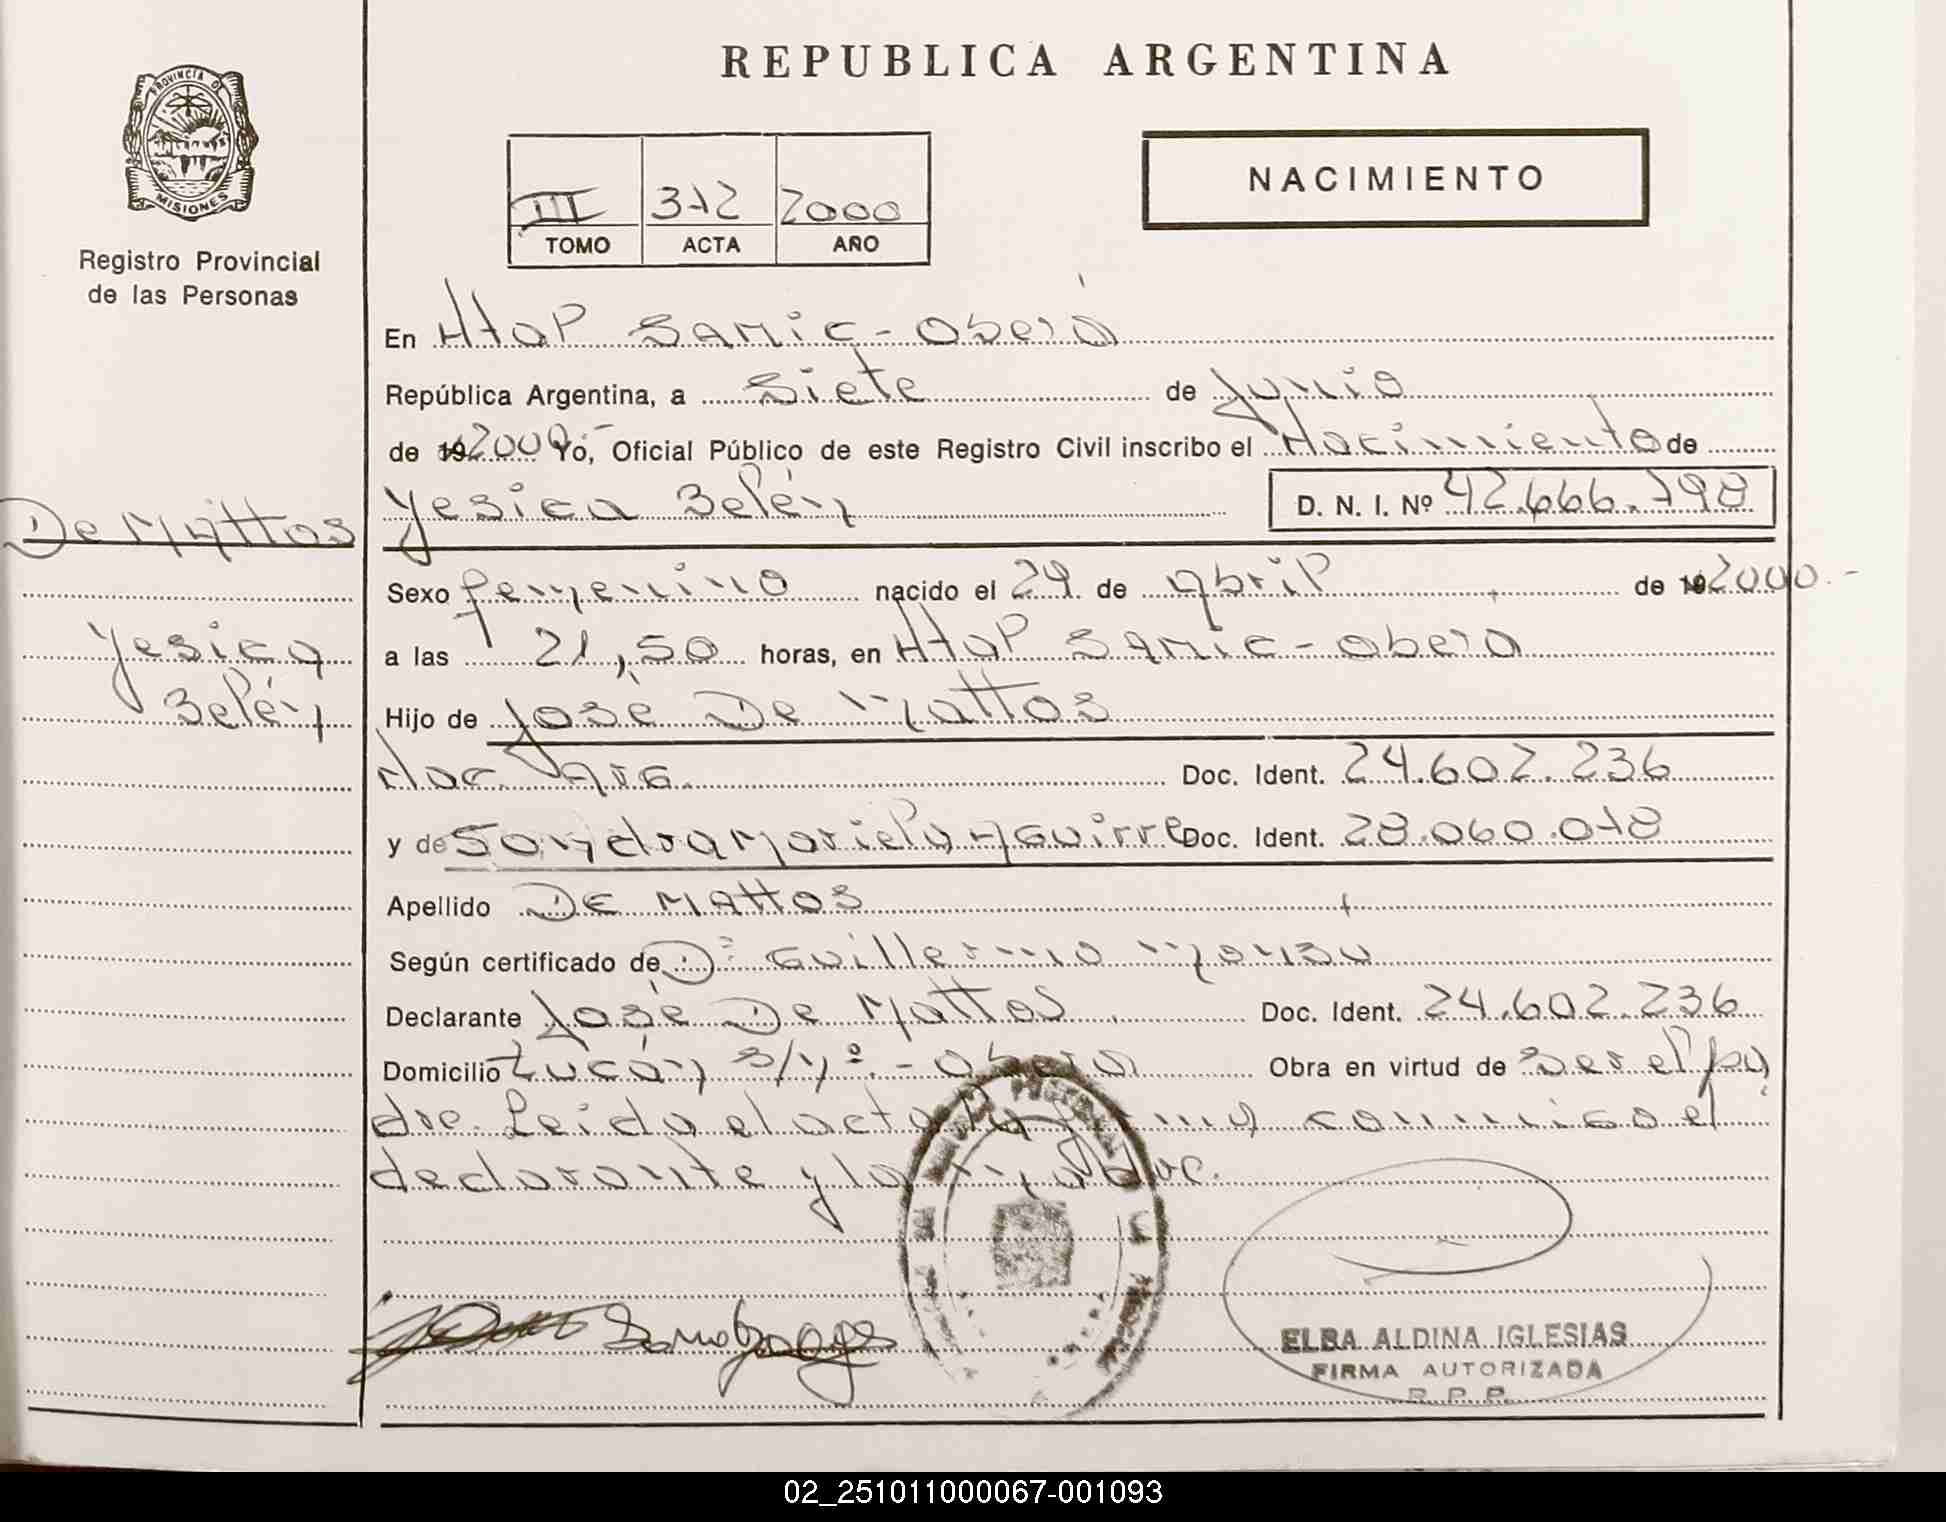 PROVINCIA DE
MISIONES
Registro Provincial
de las Personas
REPUBLICA ARGENTINA
III 372 2000
TOMO ACTA AÑO
NACIMIENTO
En Htal Samic - Oberá
República Argentina, a siete de junio
de 19 2000.- Yo, Oficial Público de este Registro Civil inscribo el Nacimiento de
De Mattos
Yesica Belén D. N. I. Nº 42.666.798
Sexo femenino nacido el 24 de abril de 19 2000.-
Yesica
a las 21,50 horas, en Htal Samic - Obera
Belén
Hijo de José De Mattos
Nac. Arg. Doc. Ident. 24.602.236
y de Sandra Mariela Aguirre Doc. Ident. 28.060.078
Apellido De Mattos
Según certificado de Dr Guillermo
Declarante José De Mattos Doc. Ident. 24.602.236
Domicilio Tucán s/nº. - Obera Obra en virtud de ser el pa
dre. Leida el acta la firma conmigo el
declarante y la madre.
ELBA ALDINA IGLESIAS
FIRMA AUTORIZADA
R. P. P.
02_251011000067-001093